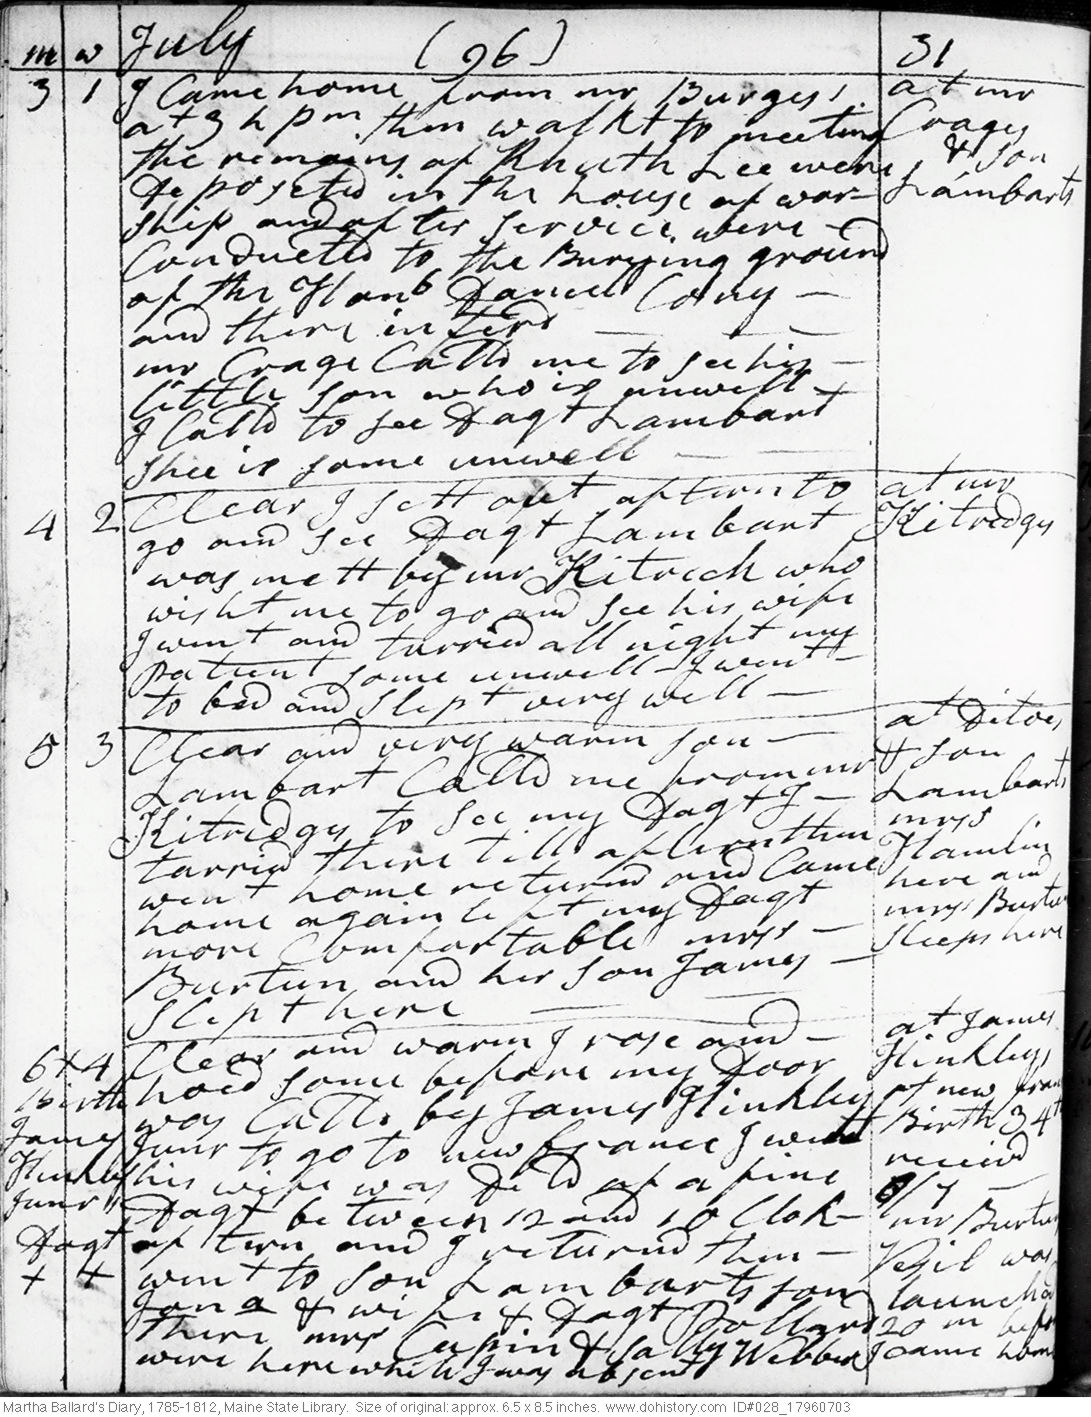 m w July (96) 31
3 1 I Came home from mr Burgess.
at 3 h pm. then walkt to meeting
the remains of Rhuth Lee were
Deposeted in the house of wor-
ship and after Service were -
Conducted to the Burying ground
of the Honb Daniel Cony -
and there interd
mr Crage Calld me to see his -
little son who is unwell
I Calld to see Dagt Lambart
shee is some unwell -
at mr
Crages
& son
Lambarts
4 2 Clear I sett out aftern to
go and see Dagt Lambart
was mett by mr Kitredg who
wisht me to go and see his wife
I went and tarried all night my
patient some unwell - I went -
to bed and slept very well -
at mr
Kitredgs
5 3 Clear and very warm son -
Lambart Calld me from mr
Kitredgs to see my Dagt I -
tarried there till aftern then
went home returnd and Came
home again left my Dagt
more Comfortable mrss -
Burtun and her son James -
slept here
at Ditoes
& son
Lambarts
mrss
Hamlin
here and
mrss Burtun
sleeps here
6 + 4 Clear and warm I rose and -
hoed some before my Door
was Calld by James Hinkley
Junr to go to new france I went
his wife was Deld of a fine
Dagt between 12 and 1 O Clok -
aftern and I returnd then -
went to son Lambarts son
Jona & wife & Dagt Pollard
there mrs Cupin & Sally Webber
were here while I was absent
Birth
James
Hinkley
Junr 11
Dagt
+ +
at James
Hinkleys
of new fran
Birth 34th
receivd
6/7 -
mr Burtuns
Vesil was
launched
20 m before
I came home
Martha Ballard's Diary, 1785-1812, Maine State Library. Size of original: approx. 6.5 x 8.5 inches. www.dohistory.com ID#028_17960703